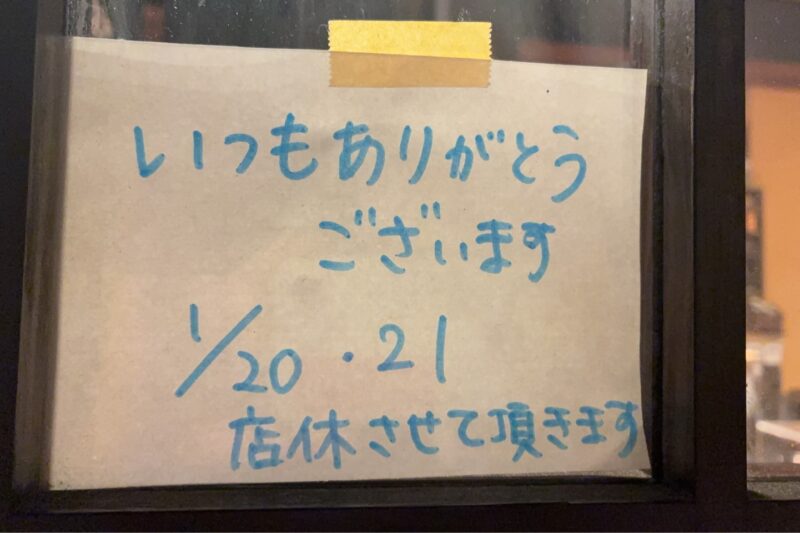 いつもありがとう
ございます
1/20・21
店休させて頂きます